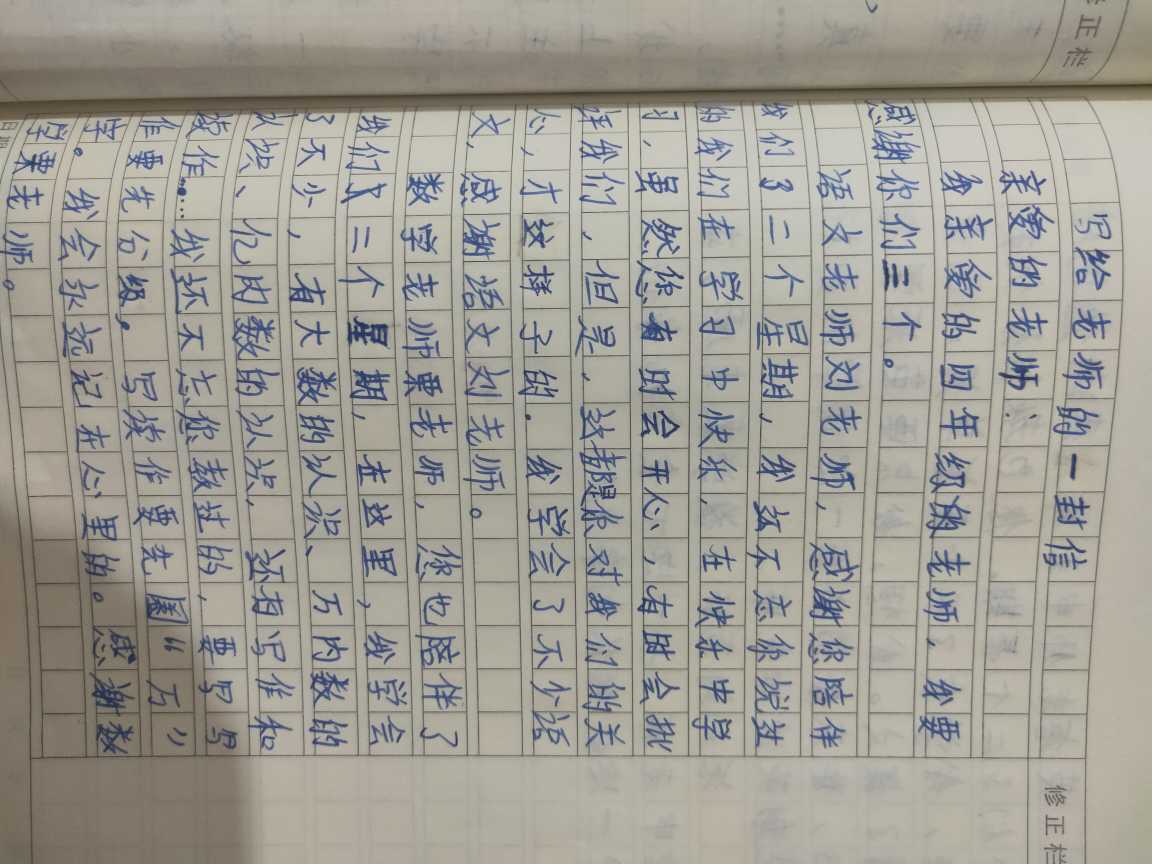 修正栏
写给老师的一封信
亲爱的老师：
我亲爱的四年级的老师，我要
感谢你们三个。
语文老师刘老师，感谢您陪伴
我们了二个星期，我永不忘你说过
的我们在学习中快乐，在快乐中学
习，虽然您有时会开心，有时会批
评我们，但是，这都是你对我们的关
心，才这样子的。我学会了不少语
文，感谢语文刘老师。
数学老师票老师，您也陪伴了
我们了三个星期，在这里，我学会
了不少，有大数的认识、万内数的
认识、亿内数的认识，还有写准和
读作……我还不忘您教过的，要写写
作要先分级。写读作要先圈“万”
字。我会永远记在心里的。感谢数
学票老师。
修正栏